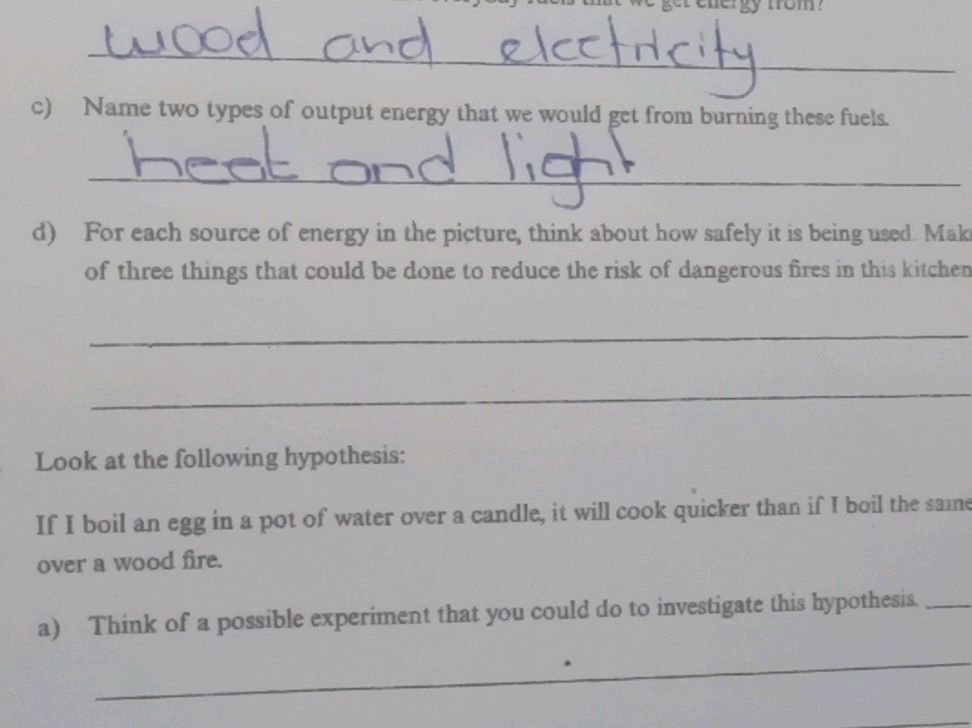 we get energy from?
wood and electricity
c) Name two types of output energy that we would get from burning these fuels.
heat and light
d) For each source of energy in the picture, think about how safely it is being used. Mak
of three things that could be done to reduce the risk of dangerous fires in this kitchen
Look at the following hypothesis:
If I boil an egg in a pot of water over a candle, it will cook quicker than if I boil the same
over a wood fire.
a) Think of a possible experiment that you could do to investigate this hypothesis.